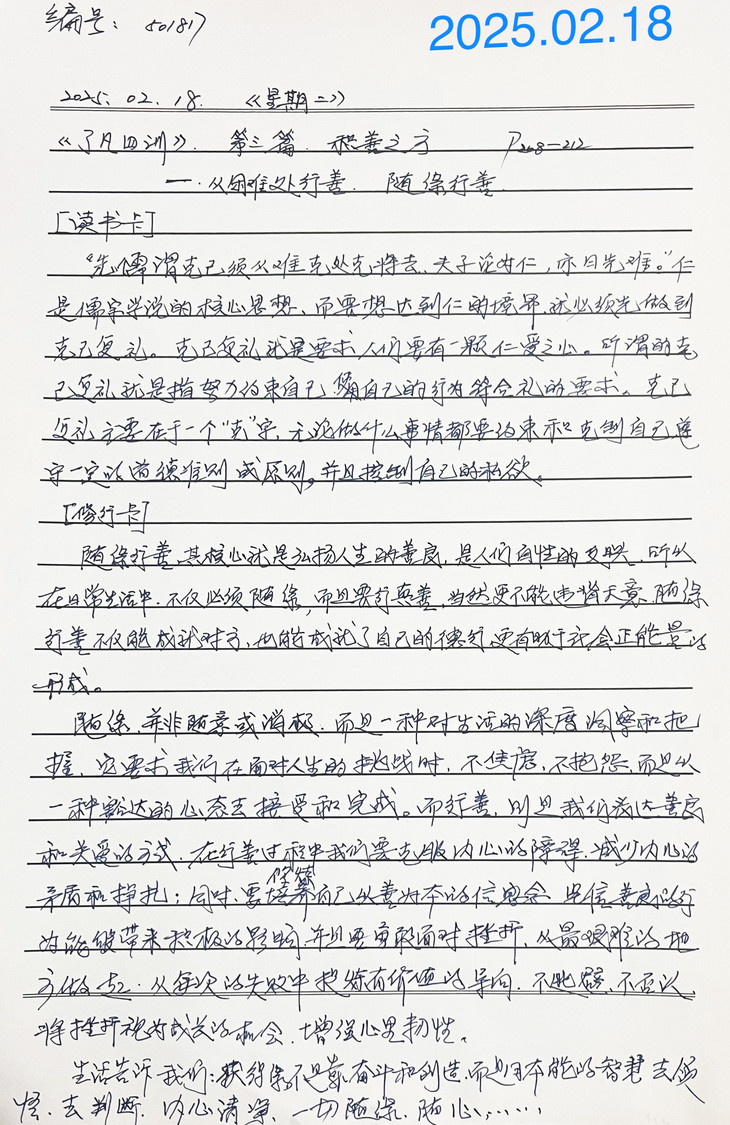 编号：501817
2025.02.18
2025.02.18. 《星期二》
《了凡四训》. 第三篇. 积善之方 P208-212
一.从困难处行善. 随缘行善.
[读书卡]
“先儒谓克己须从难克处克将去.夫子论为仁,亦曰先难。”仁
是儒家学说的核心思想、而要想达到仁的境界.就必须先做到
克己复礼。克己复礼就是要求人们要有一颗仁爱之心。所谓的克
己复礼就是指努力约束自己,使自己的行为符合礼的要求。克己
复礼主要在于一个“克”字,无论做什么事情都要约束和克制自己遵
守一定的道德准则或原则,并且控制自己的私欲。
[修行卡]
随缘行善,其核心就是弘扬人生的善良,是人们自性的 所以
在日常生活中.不仅必须随缘,而且要行真善,当然更不能违背天意.随缘
行善不仅能成就对方,也能成就了自己的德行,更有助于社会正能量的
形成。
随缘,并非随意或消极.而是一种对生活的深度洞察和把
握,它要求我们在面对人生的挑战时,不焦虑,不抱怨,而是以
一种豁达的心态去接受和完成。而行善,则是我们表达善良
和关爱的方式.在行善过程中我们要克服内心的障碍,减少内心的
矛盾和挣扎;同时,要修练自己以善为本的信念,坚信善良的行
为能够带来积极的影响,并且要勇敢面对挫折,从最艰难的地
方做起.从每次的失败中找寻有价值的导向.不逃避,不否认,
将挫折视为成长的机会.增强心里韧性。
生活告诉我们:获得缘不是靠奋斗和创造,而是用本能的智慧去领
悟.去判断.内心清净.一切随缘.随心......